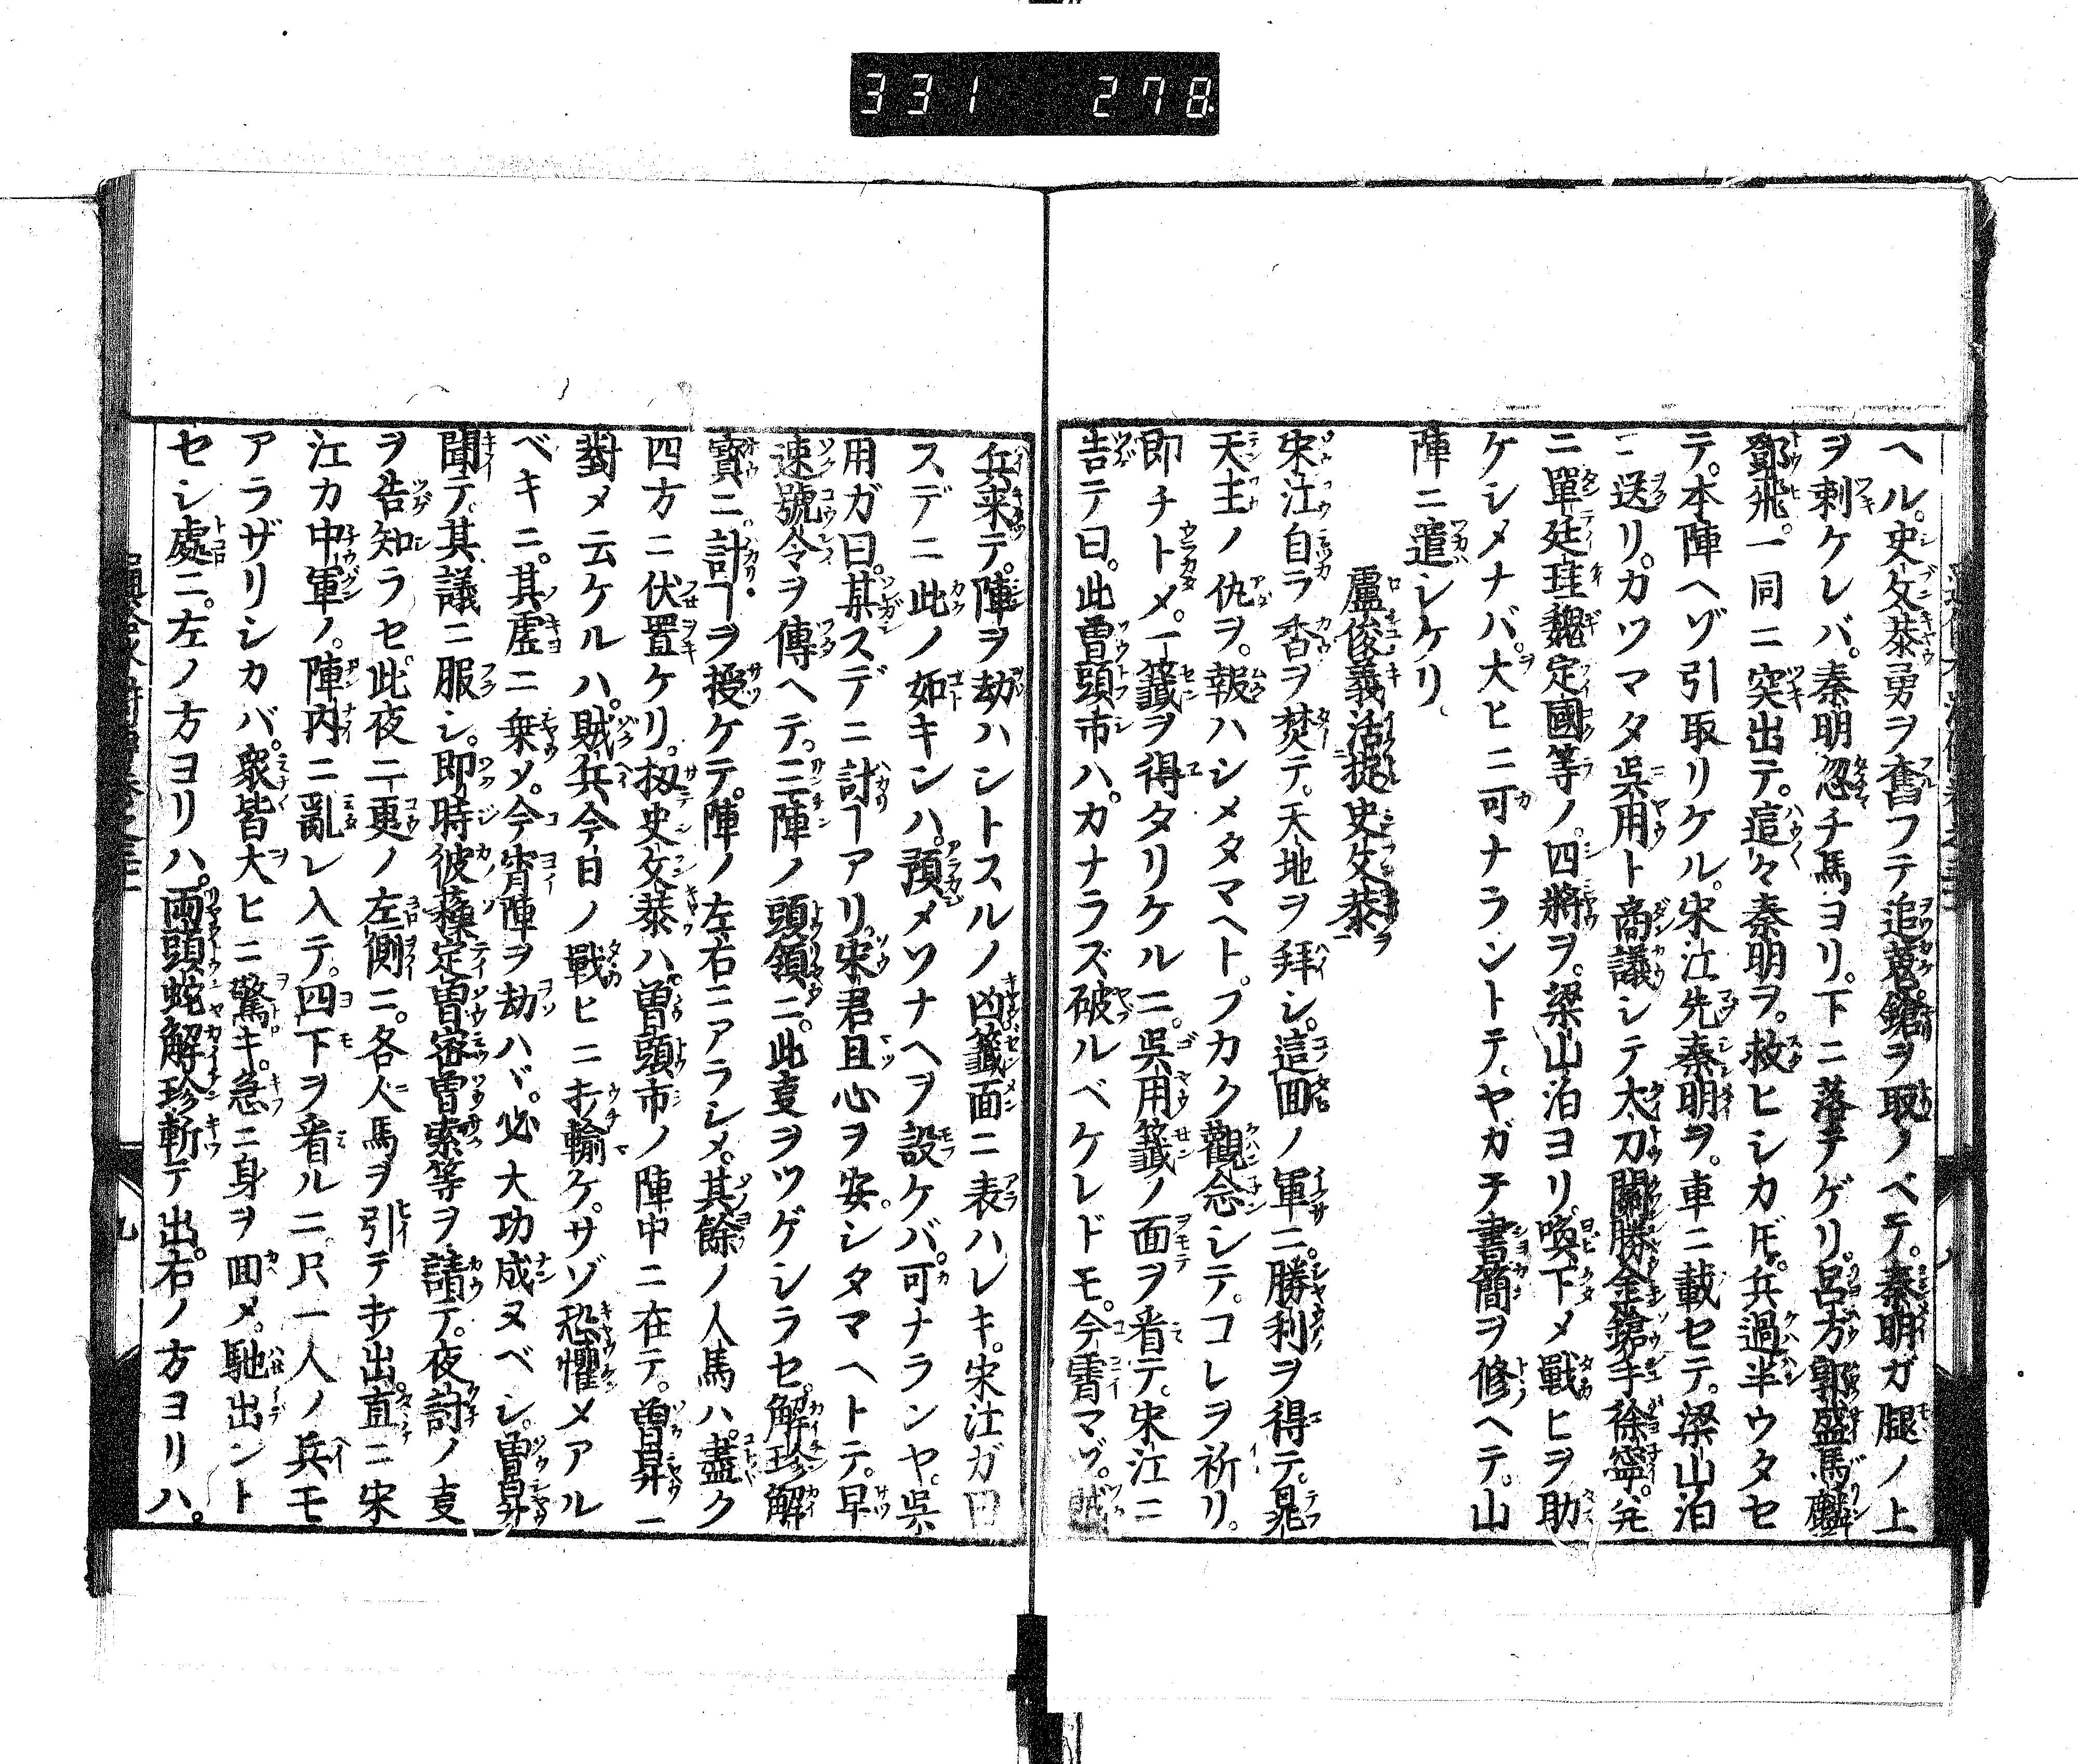 331 278
ヘル。史文恭勇ヲ奮フテ追蒐。鎗ヲ取ノベテ。秦明ガ腿ノ上
ヲ刺ケレバ。秦明忽チ馬ヨリ。下ニ落チゲリ。呂方郭盛馬麟
鄧飛。一同ニ突出テ。這々秦明ヲ。救ヒシカ𪜈。兵過半ウタセ
テ。本陣ヘゾ引取リケル。宋江先秦明ヲ。車ニ載セテ。梁山泊
ニ送リ。カツマタ呉用ト商議シテ大刀關勝金鎗手徐寧。并
ニ單廷珪魏定國等ノ。四將ヲ。梁山泊ヨリ。喚下メ戰ヒヲ助
ケシメナバ。大ヒニ可ナラントテ。ヤガテ書簡ヲ修ヘテ。山
陣ニ遣シケリ。
盧俊義活捉史文恭ヲ
宋江自ラ香ヲ焚テ。天地ヲ拜シ。這囬ノ軍ニ。勝利ヲ得テ。晁
天主ノ仇ヲ。報ハシメタマヘト。フカク觀念シテ。コレヲ祈リ。
即チトメ。一籤ヲ得タリケルニ。呉用籤ノ面ヲ看テ。宋江ニ
告テ曰。此曽頭市ハ。カナラズ破ルベケレドモ。今霄マヅ。賊
兵来テ。陣ヲ劫ハントスルノ凶籤面ニ表ハレキ。宋江ガ曰
スデニ此ノ如キンハ。預メソナヘヲ設ケバ。可ナランヤ。呉
用ガ曰。某スデニ計ヿアリ。宋君且心ヲ安。シタマヘトテ。早
速號令ヲ傳ヘテ。三陣ノ頭領ニ。此㕝ヲツゲシラセ。解珍解
寶ニ。計ヿヲ授ケテ。陣ノ左右ニアラシメ。其餘ノ人馬ハ。盡ク
四方ニ伏置ケリ。扨史文恭ハ。曽頭市ノ陣中ニ在テ。曽昇ニ
對メ云ケルハ。賊兵今日ノ戰ヒニ𪭜輸ケ。サゾ恐懼メアル
ベキニ。其虚ニ乗ソ。今宵陣ヲ劫ハヾ。必大功成ヌベシ。曽昇
聞テ。其議ニ服シ。即時彼蘓定曽密曽索等ヲ請テ。夜討ノ㕝
ヲ告知ラセ。此夜二更ノ左側ニ。各人馬ヲ引テ打出。直ニ宋
江カ中軍ノ。陣内ニ亂レ入テ。四下ヲ看ルニ。只一人ノ兵モ
アラザリシカバ。衆皆大ヒニ驚キ。急ニ身ヲ囬メ。馳出ント
セシ處ニ。左ノ方ヨリハ。両頭蛇解珍斬テ出。右ノ方ヨリハ。
九